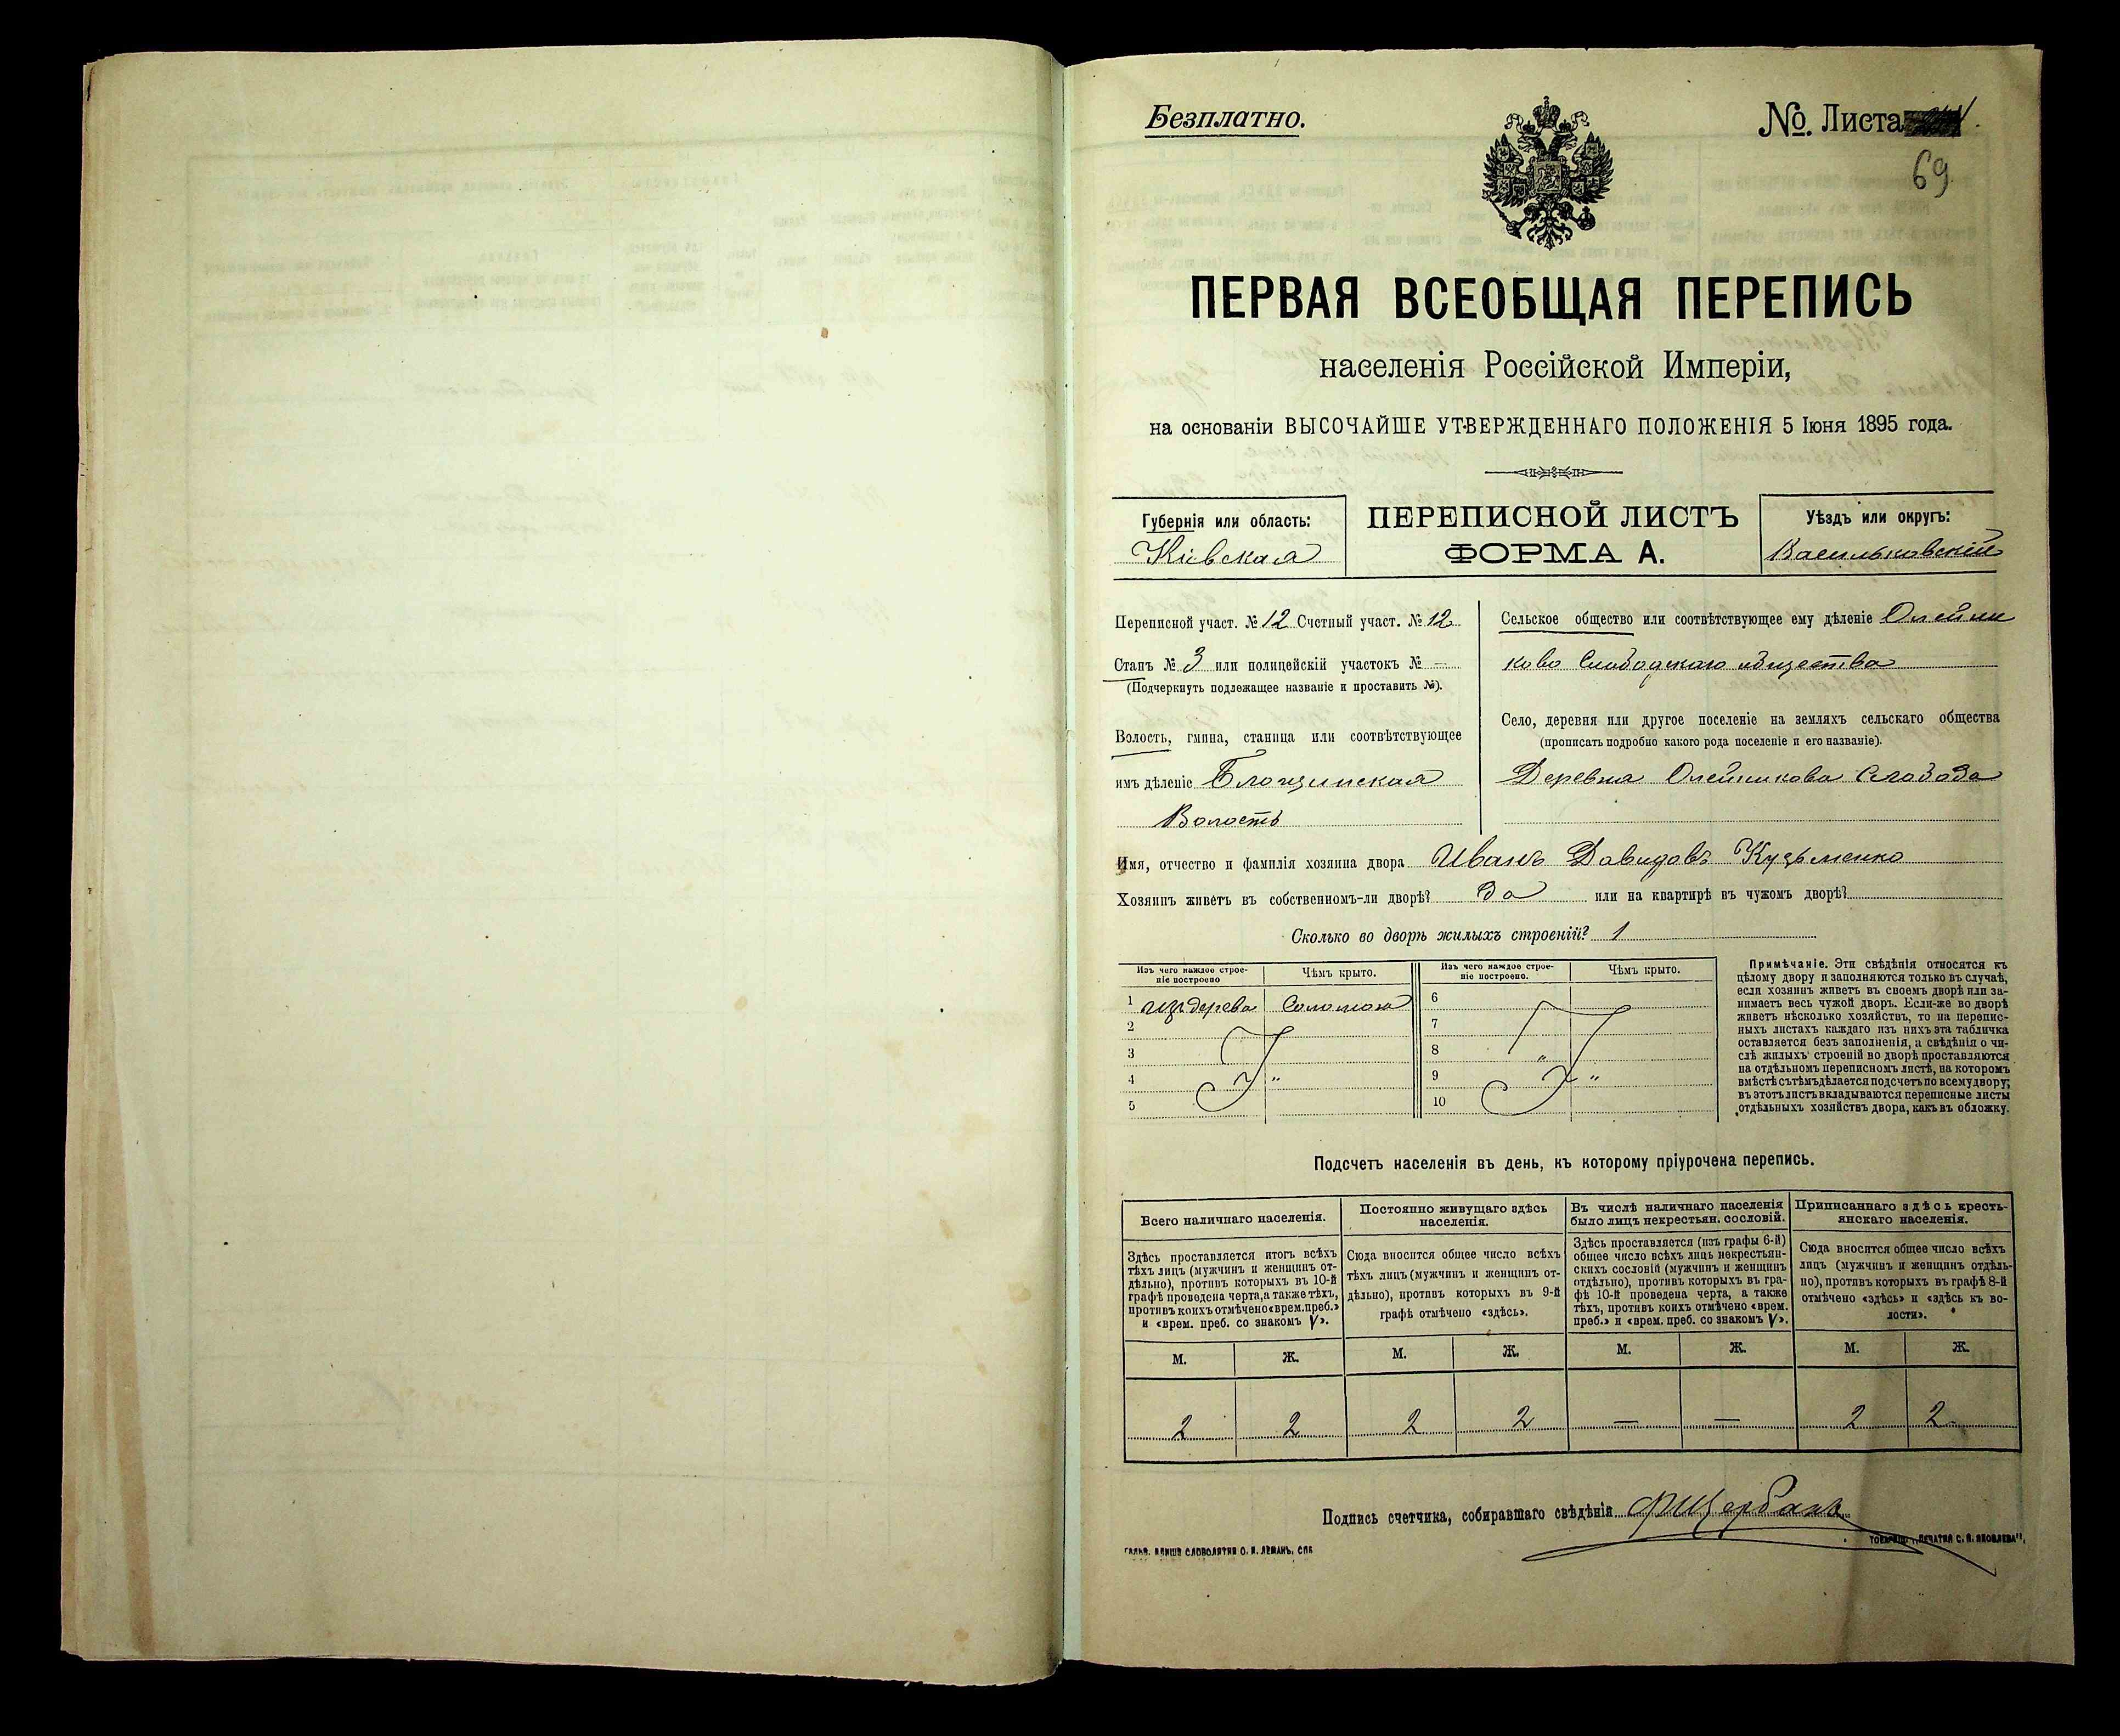 Безплатно.
№. Листа
69
ПЕРВАЯ ВСЕОБЩАЯ ПЕРЕПИСЬ
населенія Россійской Имперіи,
на основаніи ВЫСОЧАЙШЕ УТВЕРЖДЕННАГО ПОЛОЖЕНІЯ 5 Іюня 1895 года.
Губернія или область:
Кіевская
ПЕРЕПИСНОЙ ЛИСТЪ
ФОРМА А.
Уѣздъ или округъ:
Васильковскій
Переписной участ. № 12 Счетный участ. № 12
Станъ № 3 или полицейскій участокъ № —
(Подчеркнуть подлежащее названіе и проставить №).
Волость, гмина, станица или соотвѣтствующее
имъ дѣленіе Блощинская
Волость
Сельское общество или соотвѣтствующее ему дѣленіе Олейни
ково Слободскаго общества
Село, деревня или другое поселеніе на земляхъ сельскаго общества
(прописать подробно какого рода поселеніе и его названіе).
Деревня Олейникова Слобода
Имя, отчество и фамилія хозяина двора Иванъ Давидовъ Кузьменко
Хозяинъ живетъ въ собственномъ-ли дворѣ? Да или на квартирѣ въ чужомъ дворѣ?
Сколько во дворѣ жилыхъ строеній? 1
Изъ чего каждое строе-
ніе построено
Чѣмъ крыто.
Изъ чего каждое строе-
ніе построено.
Чѣмъ крыто.
1 изъ дерева Соломою
2
3
4 "
5
6
7
8 "
9 "
10
Примѣчаніе. Эти свѣдѣнія относятся къ
цѣлому двору и заполняются только въ случаѣ,
если хозяинъ живетъ въ своемъ дворѣ или за-
нимаетъ весь чужой дворъ. Если-же во дворѣ
живетъ нѣсколько хозяйствъ, то на перепис-
ныхъ листахъ каждаго изъ нихъ эта табличка
оставляется безъ заполненія, а свѣдѣнія о чи-
слѣ жилыхъ строеній во дворѣ проставляются
на отдѣльномъ переписномъ листѣ, на которомъ
вмѣстѣ съ тѣмъ дѣлается подсчетъ по всему двору;
въ этотъ листъ вкладываются переписные листы
отдѣльныхъ хозяйствъ двора, какъ въ обложку.
Подсчетъ населенія въ день, къ которому пріурочена перепись.
Всего наличнаго населенія.
Здѣсь проставляется итогъ всѣхъ
тѣхъ лицъ (мужчинъ и женщинъ от-
дѣльно), противъ которыхъ въ 10-й
графѣ проведена черта, а также тѣхъ,
противъ коихъ отмѣчено «врем. преб.»
и «врем. преб. со знакомъ V».
Постоянно живущаго здѣсь
населенія.
Сюда вносится общее число всѣхъ
тѣхъ лицъ (мужчинъ и женщинъ от-
дѣльно), противъ которыхъ въ 9-й
графѣ отмѣчено «здѣсь».
Въ числѣ наличнаго населенія
было лицъ некрестьян. сословій.
Здѣсь проставляется (изъ графы 6-й)
общее число всѣхъ лицъ некрестьян-
скихъ сословій (мужчинъ и женщинъ
отдѣльно), противъ которыхъ въ гра-
фѣ 10-й проведена черта, а также
тѣхъ, противъ коихъ отмѣчено «врем.
преб.» и «врем. преб. со знакомъ V».
Приписаннаго здѣсь кресть-
янскаго населенія.
Сюда вносится общее число всѣхъ
лицъ (мужчинъ и женщинъ отдѣль-
но), противъ которыхъ въ графѣ 8-й
отмѣчено «здѣсь» и «здѣсь къ во-
лости».
М. Ж. М. Ж. М. Ж. М. Ж.
2 2 2 2 — — 2 2
Подпись счетчика, собиравшаго свѣдѣнія ФЩербань
ГАЛЬВ. КЛИШЕ СЛОВОЛИТНИ О. И. ЛЕМАНЪ, СПБ
ПЕЧАТНЯ С. П. ЯКОВЛЕВА",